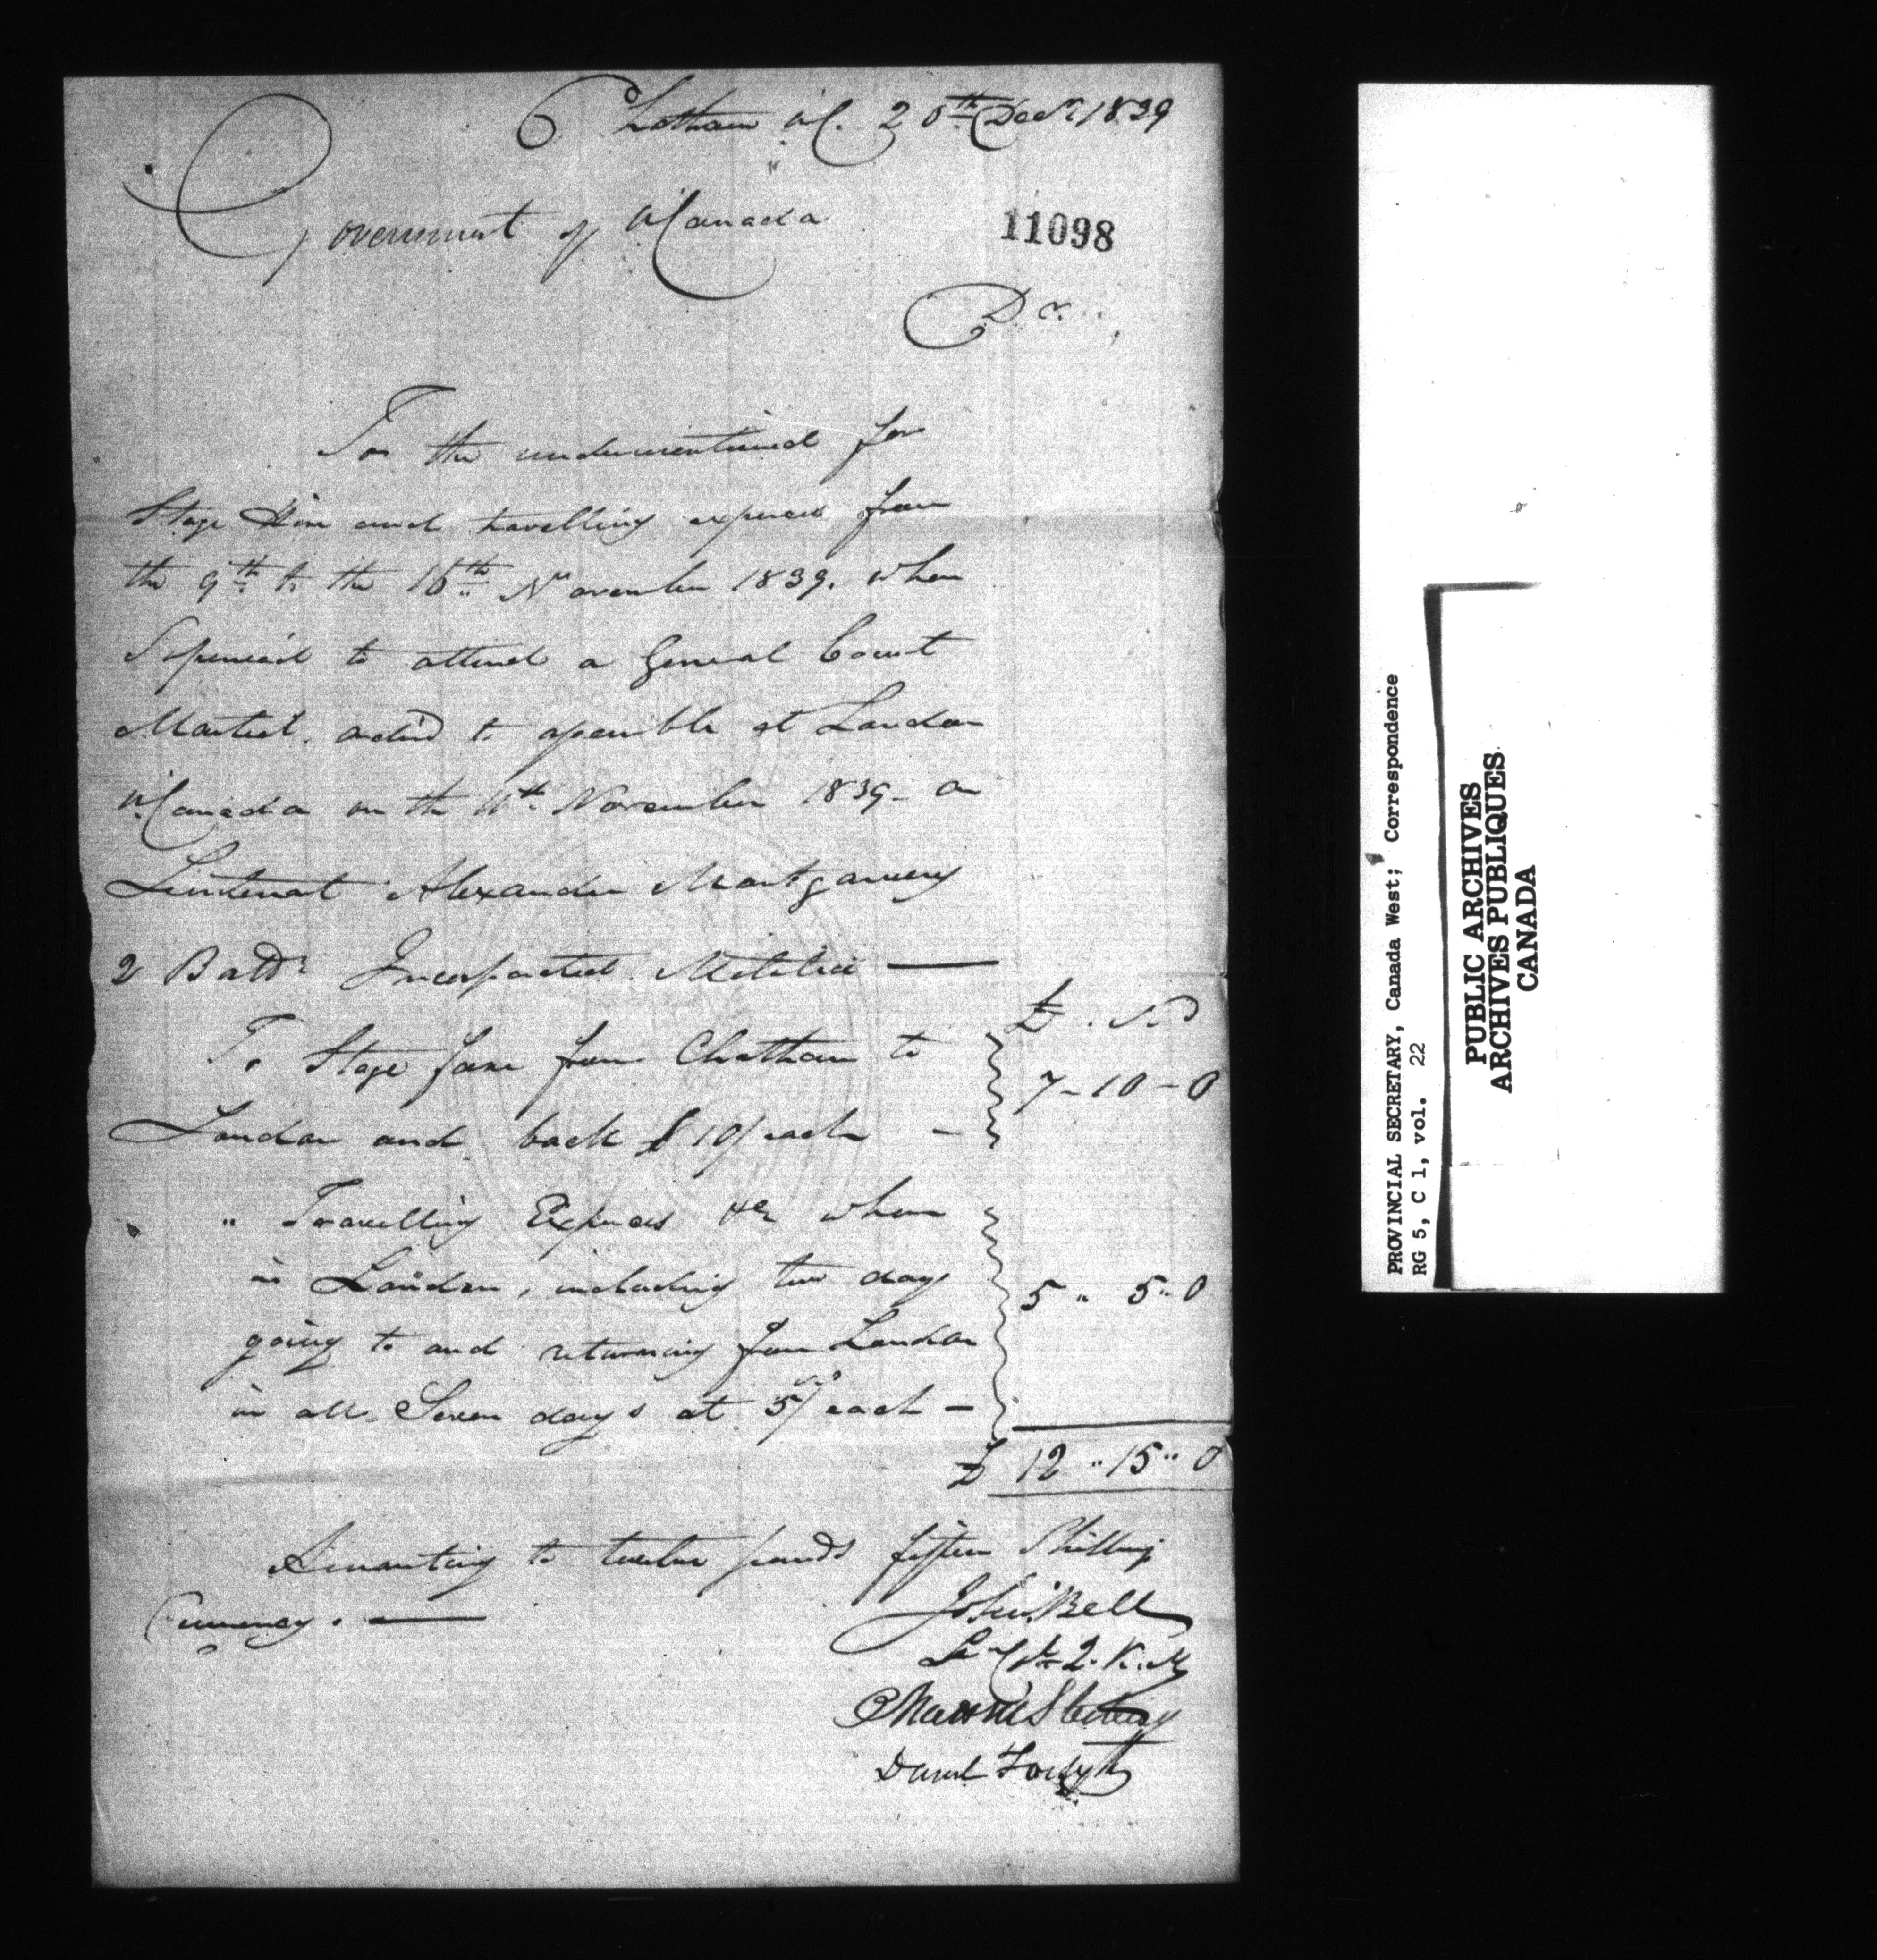 Chatham U.C. 20th Decr. 1839
Government of U Canada
11098
Dr.
To the undermentioned for
Stage Hire and travelling expences from
the 9th to the 16th November 1839. when
to attend a General Court
Martial. order'd to assemble at London
U Canada on the 11th November 1839 - on
Lieutenant Alexander Montgomery
2 Battn. Incorporated Militia —
£ . S D
To Stage fare from Chatham to
7 - 10 - 0
London and back $ 10/ each -
" Travelling Expences &c when
in London, including two days
5 " 5 " 0
going to and returning from London
in all Seven days at 5/ each -
£ 12 " 15 " 0
Amounting to twelve pounds fifteen Shillings
Currency. —
John Bell
2. K. M
David Forsyth
PROVINCIAL SECRETARY, Canada West; Correspondence
RG 5, C 1, vol. 22
PUBLIC ARCHIVES
ARCHIVES PUBLIQUES
CANADA